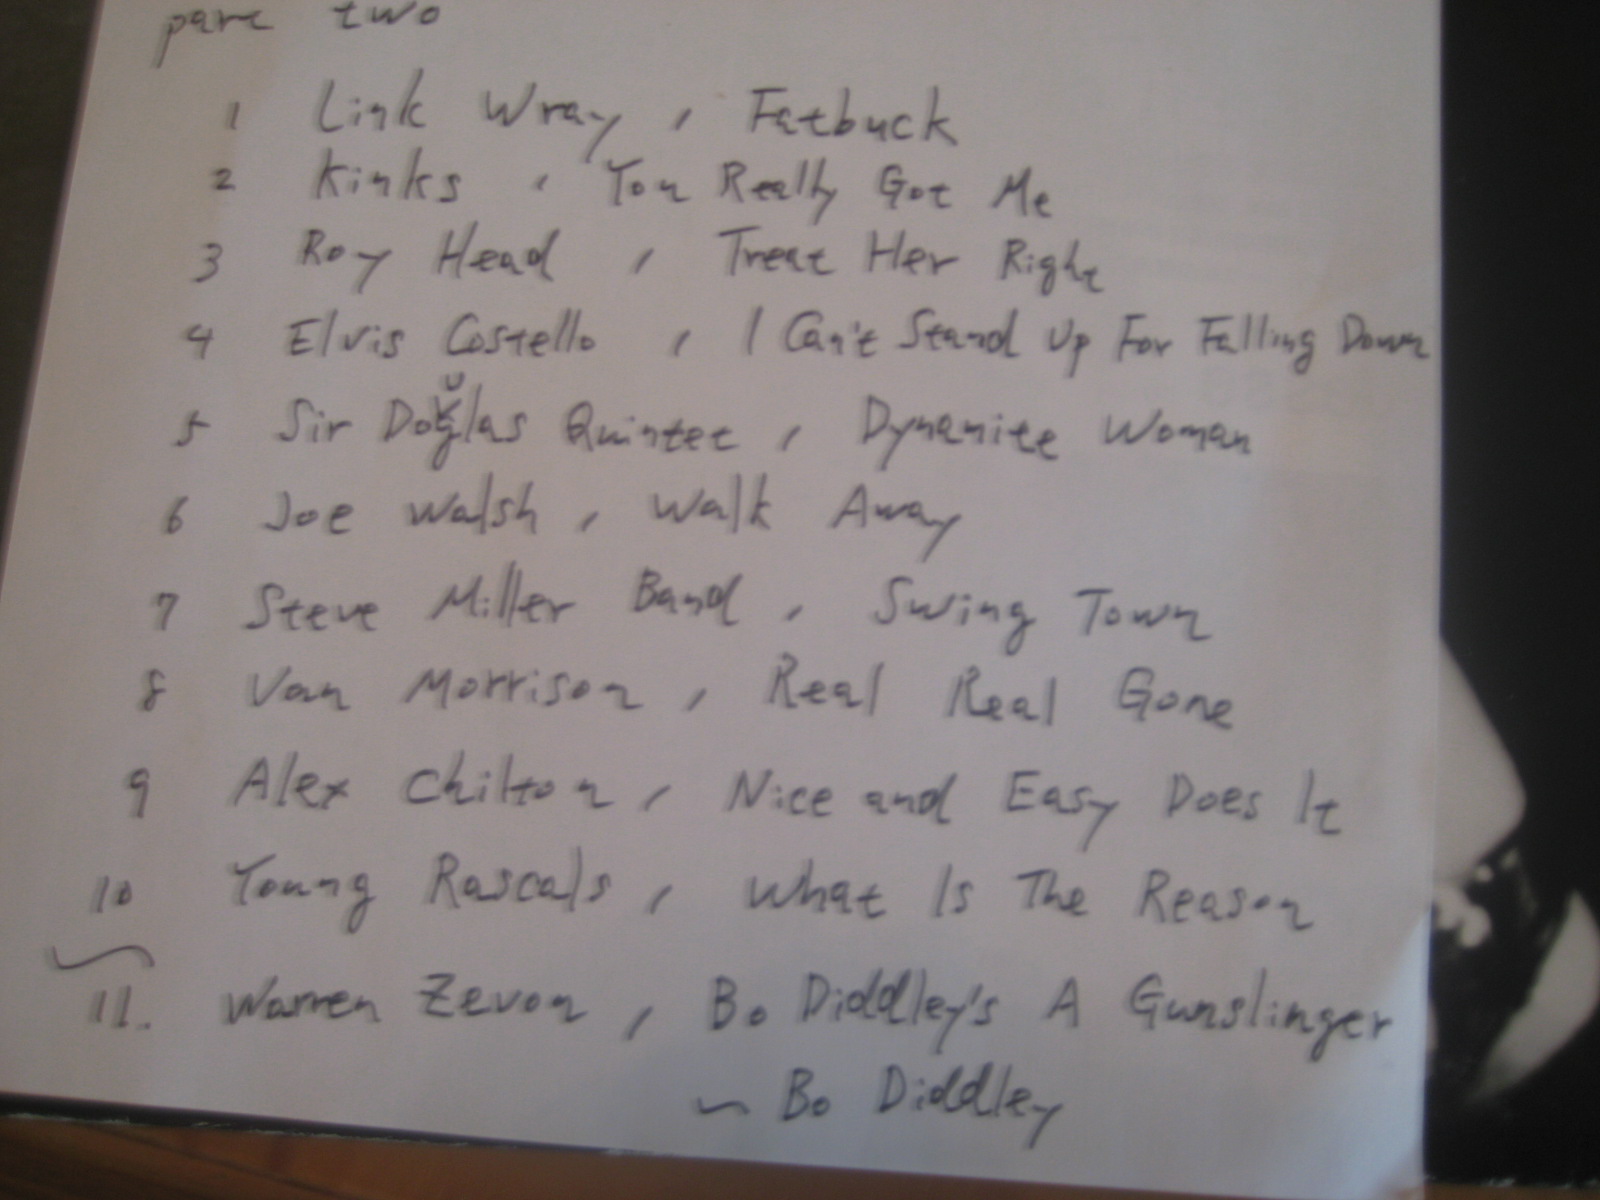 part two
1 Link Wray, Fatbuck
2 Kinks, You Really Got Me
3 Roy Head, Treat Her Right
4 Elvis Costello, I Can't Stand Up For Falling Down
5 Sir Douglas Quintet, Dynamite Woman
6 Joe Walsh, Walk Away
7 Steve Miller Band, Swing Town
8 Van Morrison, Real Real Gone
9 Alex Chilton, Nice and Easy Does It
10 Young Rascals, What Is The Reason
11. Warren Zevon, Bo Diddley's A Gunslinger
~ Bo Diddley